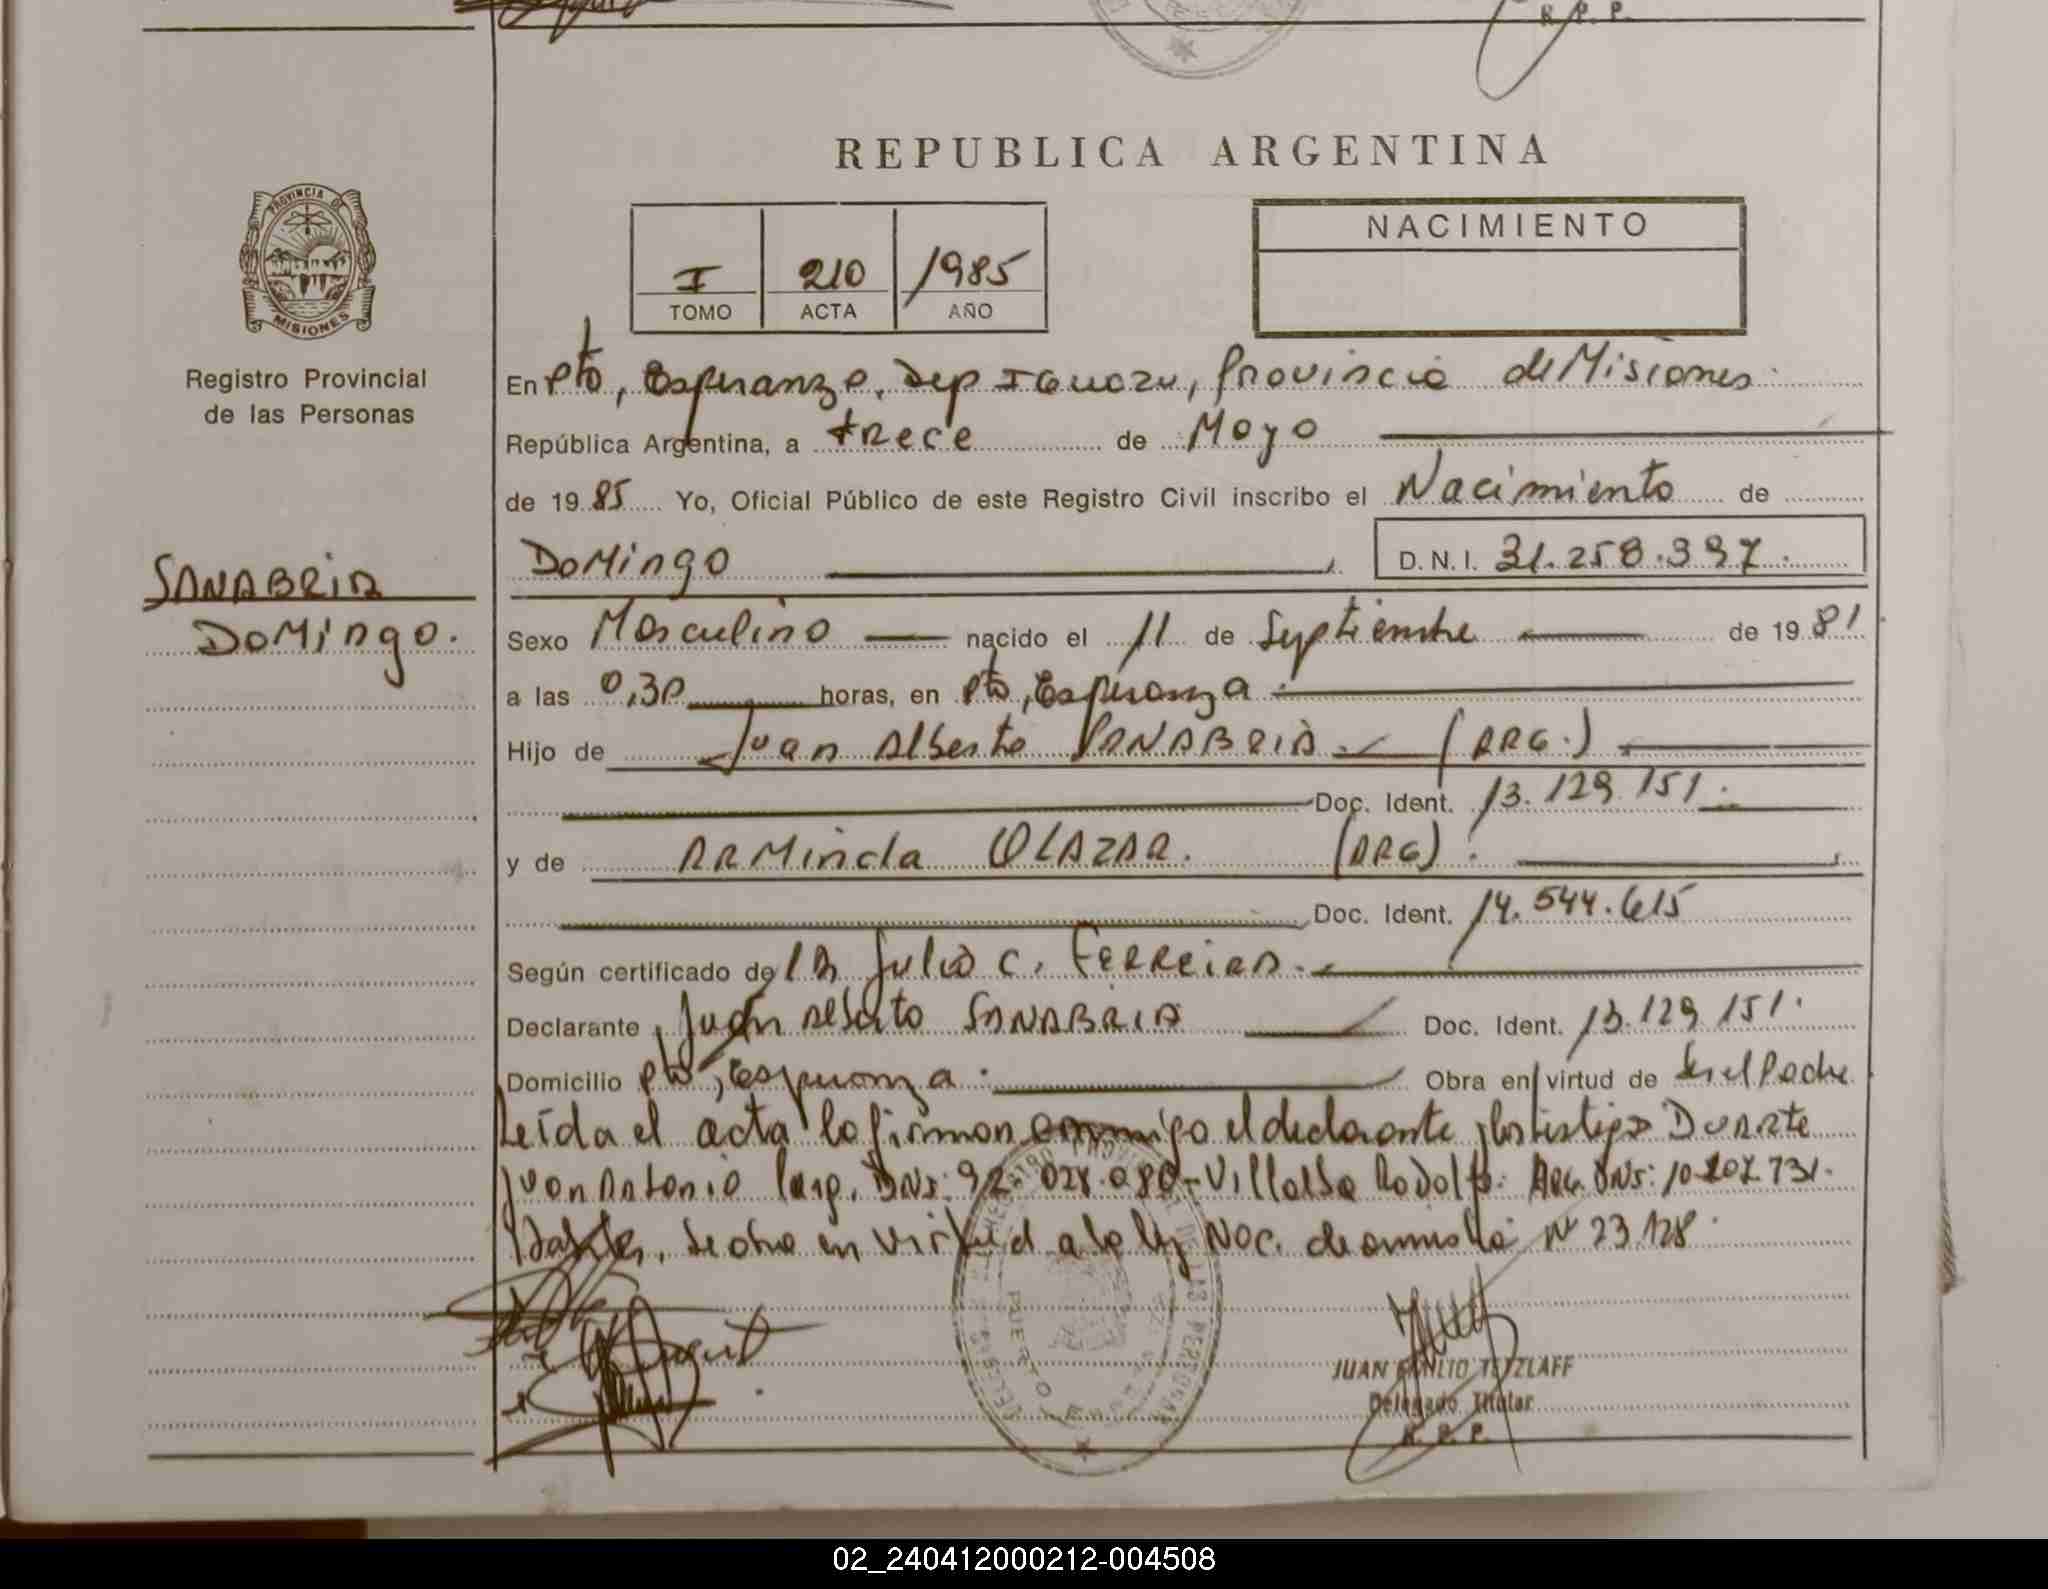 R. P. P.
REPUBLICA ARGENTINA
PROVINCIA DE
MISIONES
Registro Provincial
de las Personas
I 210 1985
TOMO ACTA AÑO
NACIMIENTO
En Pto, Esperanza, Dep Iguazu, Provincia de Misiones
República Argentina, a trece de Mayo
de 1985 Yo, Oficial Público de este Registro Civil inscribo el Nacimiento de
Domingo D. N. I. 31.258.397
SANABRIA
Domingo.
Sexo Masculino nacido el 11 de Septiembre de 1981
a las 0,30 horas, en Pto, Esperanza
Hijo de Juan Alberto SANABRIA (ARG.)
Doc. Ident. 13.129.151
y de ARMinda OLAZAR. (ARG)
Doc. Ident. 14.544.615
Según certificado de Julio C. Ferreira
Declarante Juan Alberto SANABRIA Doc. Ident. 13.129.151.
Domicilio Pto, Esperanza Obra en virtud de Ser el Padre
Leída el acta la firman conmigo el declarante y los testigos Duarte
Juan Antonio DNI: 92.028.080 - Villalba Rodolfo. Arg. DNI: 10.207.731.
Se obra en virtud a la ley Nac. de amnistia Nº 23.128.
PUERTO
JUAN EMILIO TETZLAFF
Delegado Titular
R. P. P.
02_240412000212-004508